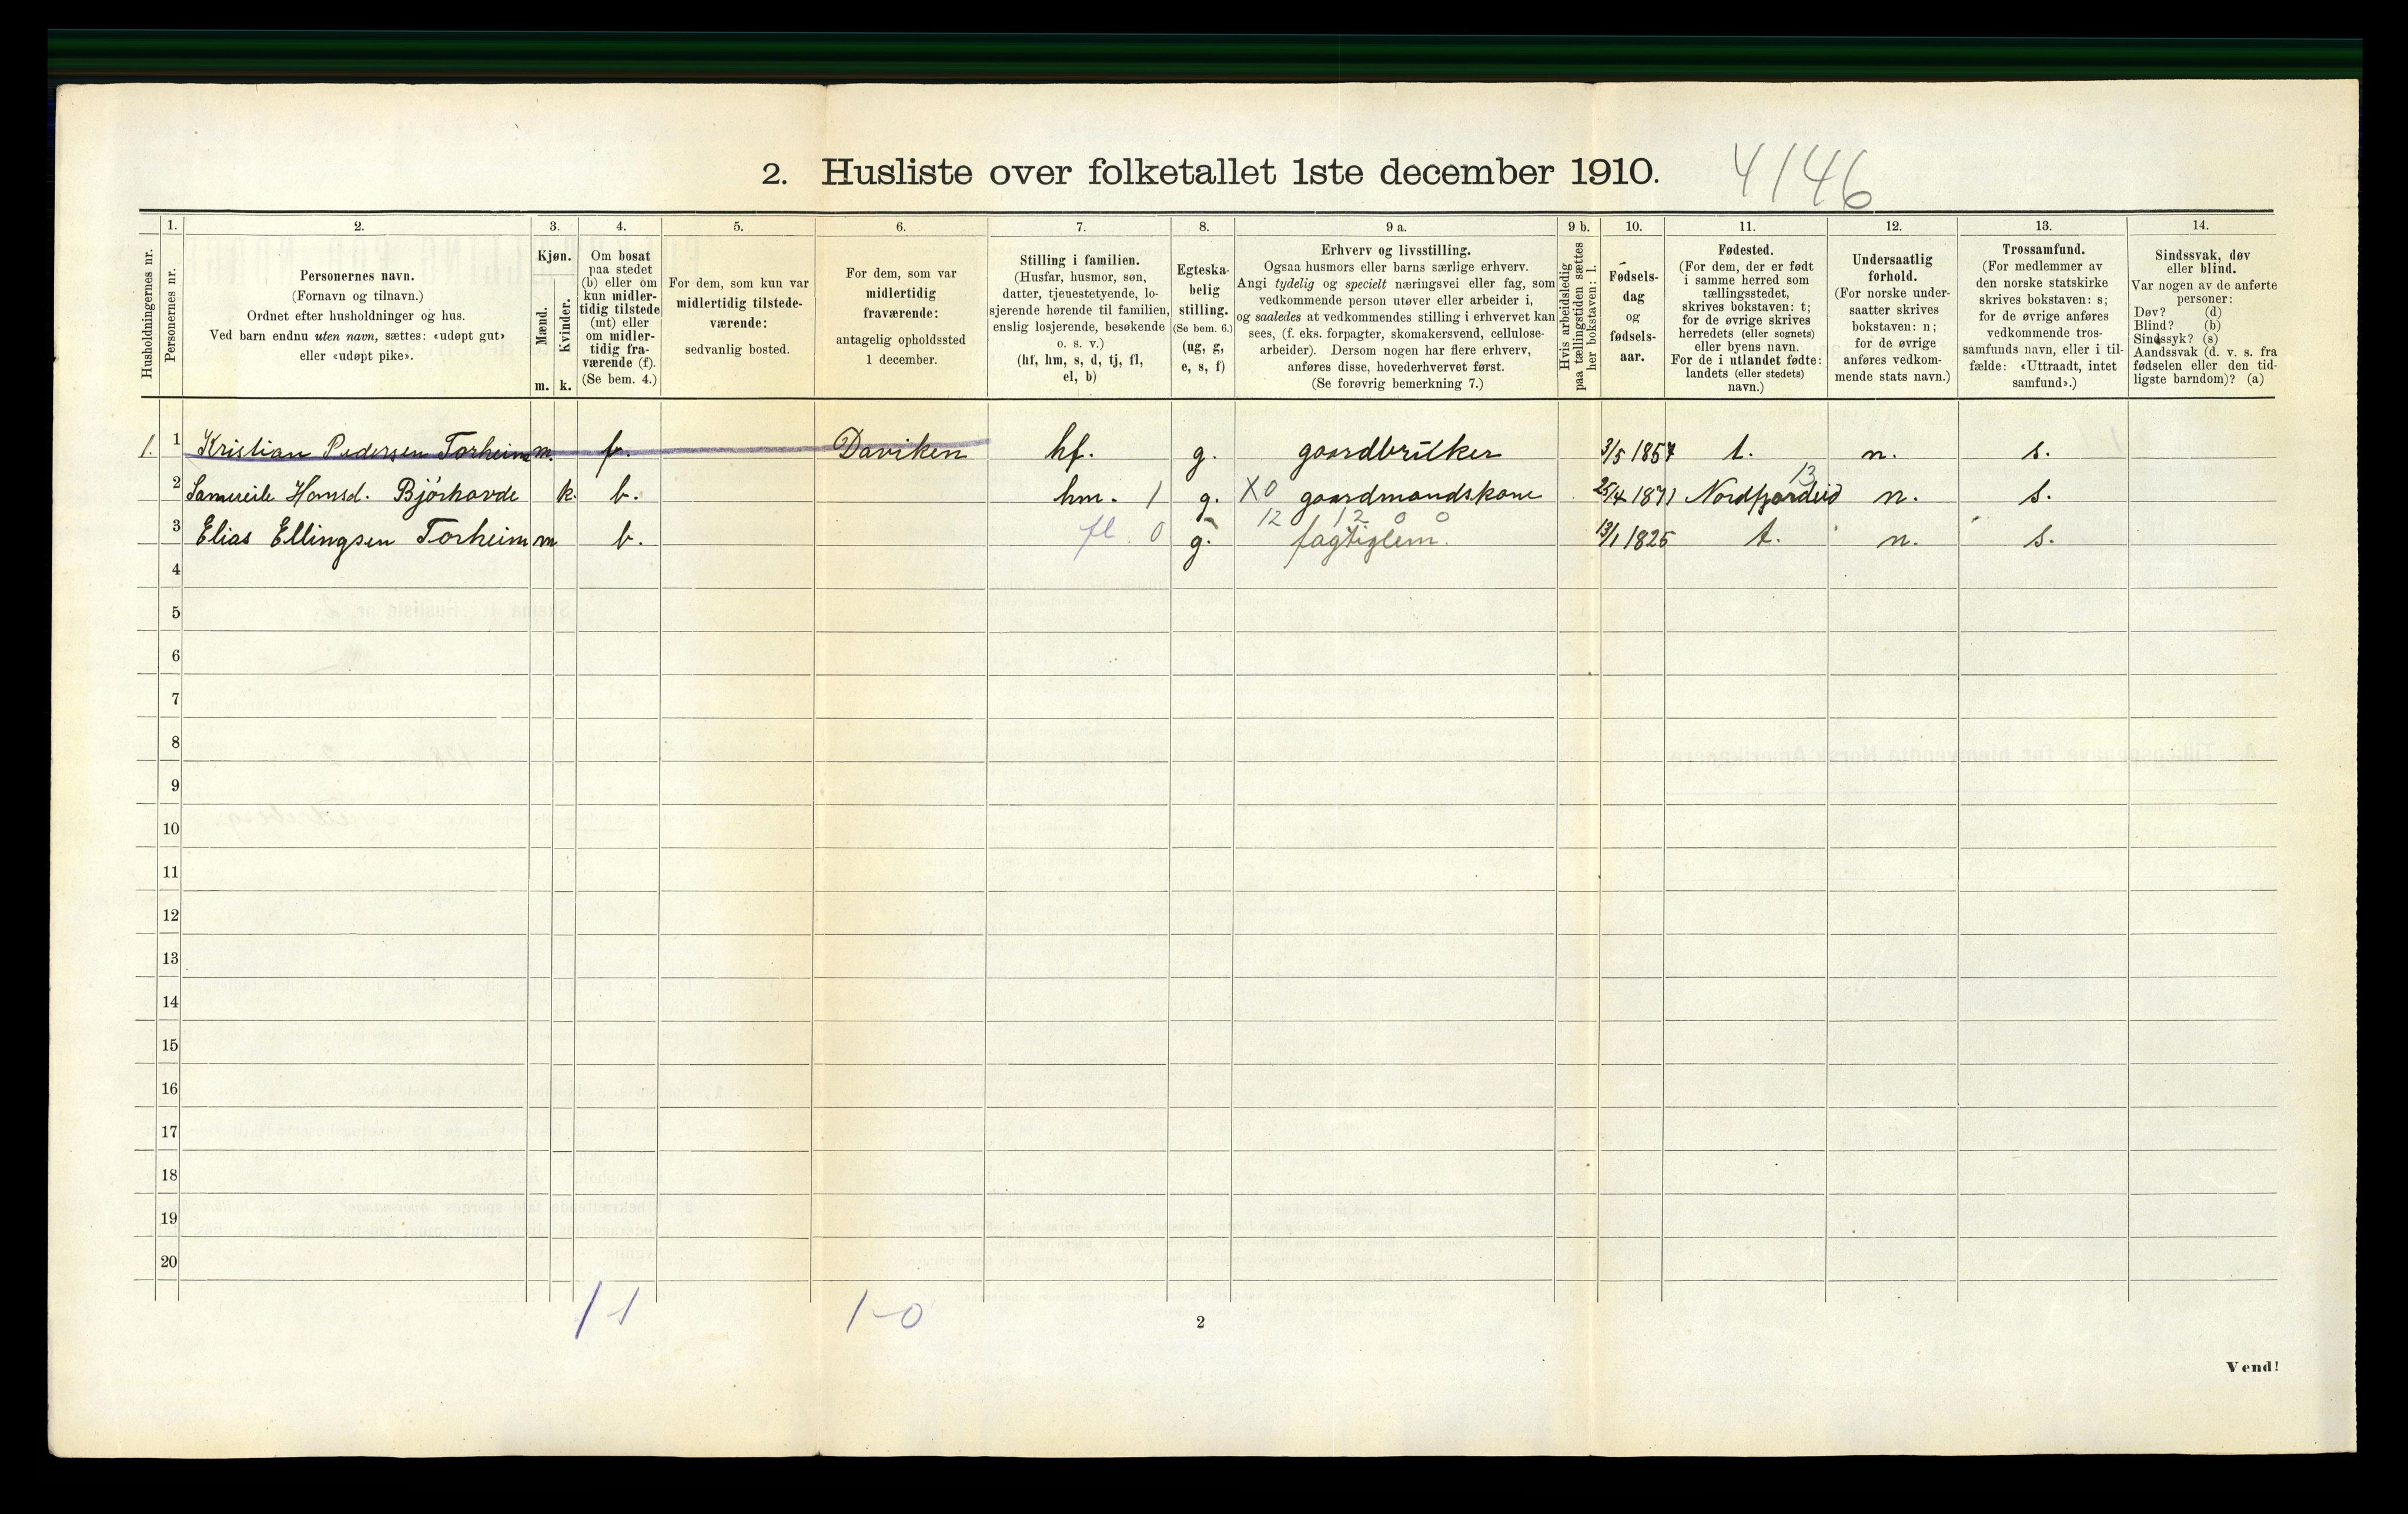 2. Husliste over folketallet 1ste december 1910. 4146
Husholdningernes nr.
1.
Personernes nr.
2.
Personernes navn.
(Fornavn og tilnavn.)
Ordnet efter husholdninger og hus.
Ved barn endnu uten navn, sættes: «udøpt gut»
eller «udøpt pike».
3.
Kjøn.
Mænd.
m.
Kvinder.
k.
4.
Om bosat
paa stedet
(b) eller om
kun midler-
tidig tilstede
(mt) eller
om midler-
tidig fra-
værende (f).
(Se bem. 4.)
5.
For dem, som kun var
midlertidig tilstede-
værende:
sedvanlig bosted.
6.
For dem, som var
midlertidig
fraværende:
antagelig opholdssted
1 december.
7.
Stilling i familien.
(Husfar, husmor, søn,
datter, tjenestetyende, lo-
sjerende hørende til familien,
enslig losjerende, besøkende
o. s. v.)
(hf, hm, s, d, tj, fl,
el, b)
8.
Egteska-
belig
stilling.
(Se bem. 6.)
(ug, g,
e, s, f)
9 a.
Erhverv og livsstilling.
Ogsaa husmors eller barns særlige erhverv.
Angi tydelig og specielt næringsvei eller fag, som
vedkommende person utøver eller arbeider i,
og saaledes at vedkommendes stilling i erhvervet kan
sees, (f. eks. forpagter, skomakersvend, cellulose-
arbeider). Dersom nogen har flere erhverv,
anføres disse, hovederhvervet først.
(Se forøvrig bemerkning 7.)
9 b.
Hvis arbeidsledig
paa tællingstiden sættes
her bokstaven: l.
10.
Fødsels-
dag
og
fødsels-
aar.
11.
Fødested.
(For dem, der er født
i samme herred som
tællingsstedet,
skrives bokstaven: t;
for de øvrige skrives
herredets (eller sognets)
eller byens navn.
For de i utlandet fødte:
landets (eller stedets)
navn.)
12.
Undersaatlig
forhold.
(For norske under-
saatter skrives
bokstaven: n;
for de øvrige
anføres vedkom-
mende stats navn.)
13.
Trossamfund.
(For medlemmer av
den norske statskirke
skrives bokstaven: s;
for de øvrige anføres
vedkommende tros-
samfunds navn, eller i til-
fælde: «Uttraadt, intet
samfund».)
14.
Sindssvak, døv
eller blind.
Var nogen av de anførte
personer:
Døv? (d)
Blind? (b)
Sindssyk? (s)
Aandssvak (d. v. s. fra
fødselen eller den tid-
ligste barndom)? (a)
1. 1 Kristian Pedersen Torheim m. f. Daviken hf. g. gaardbruker 3/5 1857 t. n. s.
2 Hansd. Bjørhovde k. b. hm. 1 g. X0 gaardmandskone 25/4 1871 Nordfjordeid 13 n. s.
12 12 0 0
3 Elias Ellingsen Torheim m b. fl. 0 g. fagtiglem. 13/1 1825 t. n. s.
4
5
6
7
8
9
10
11
12
13
14
15
16
17
18
19
20
1 1
1-0
2
Vend!